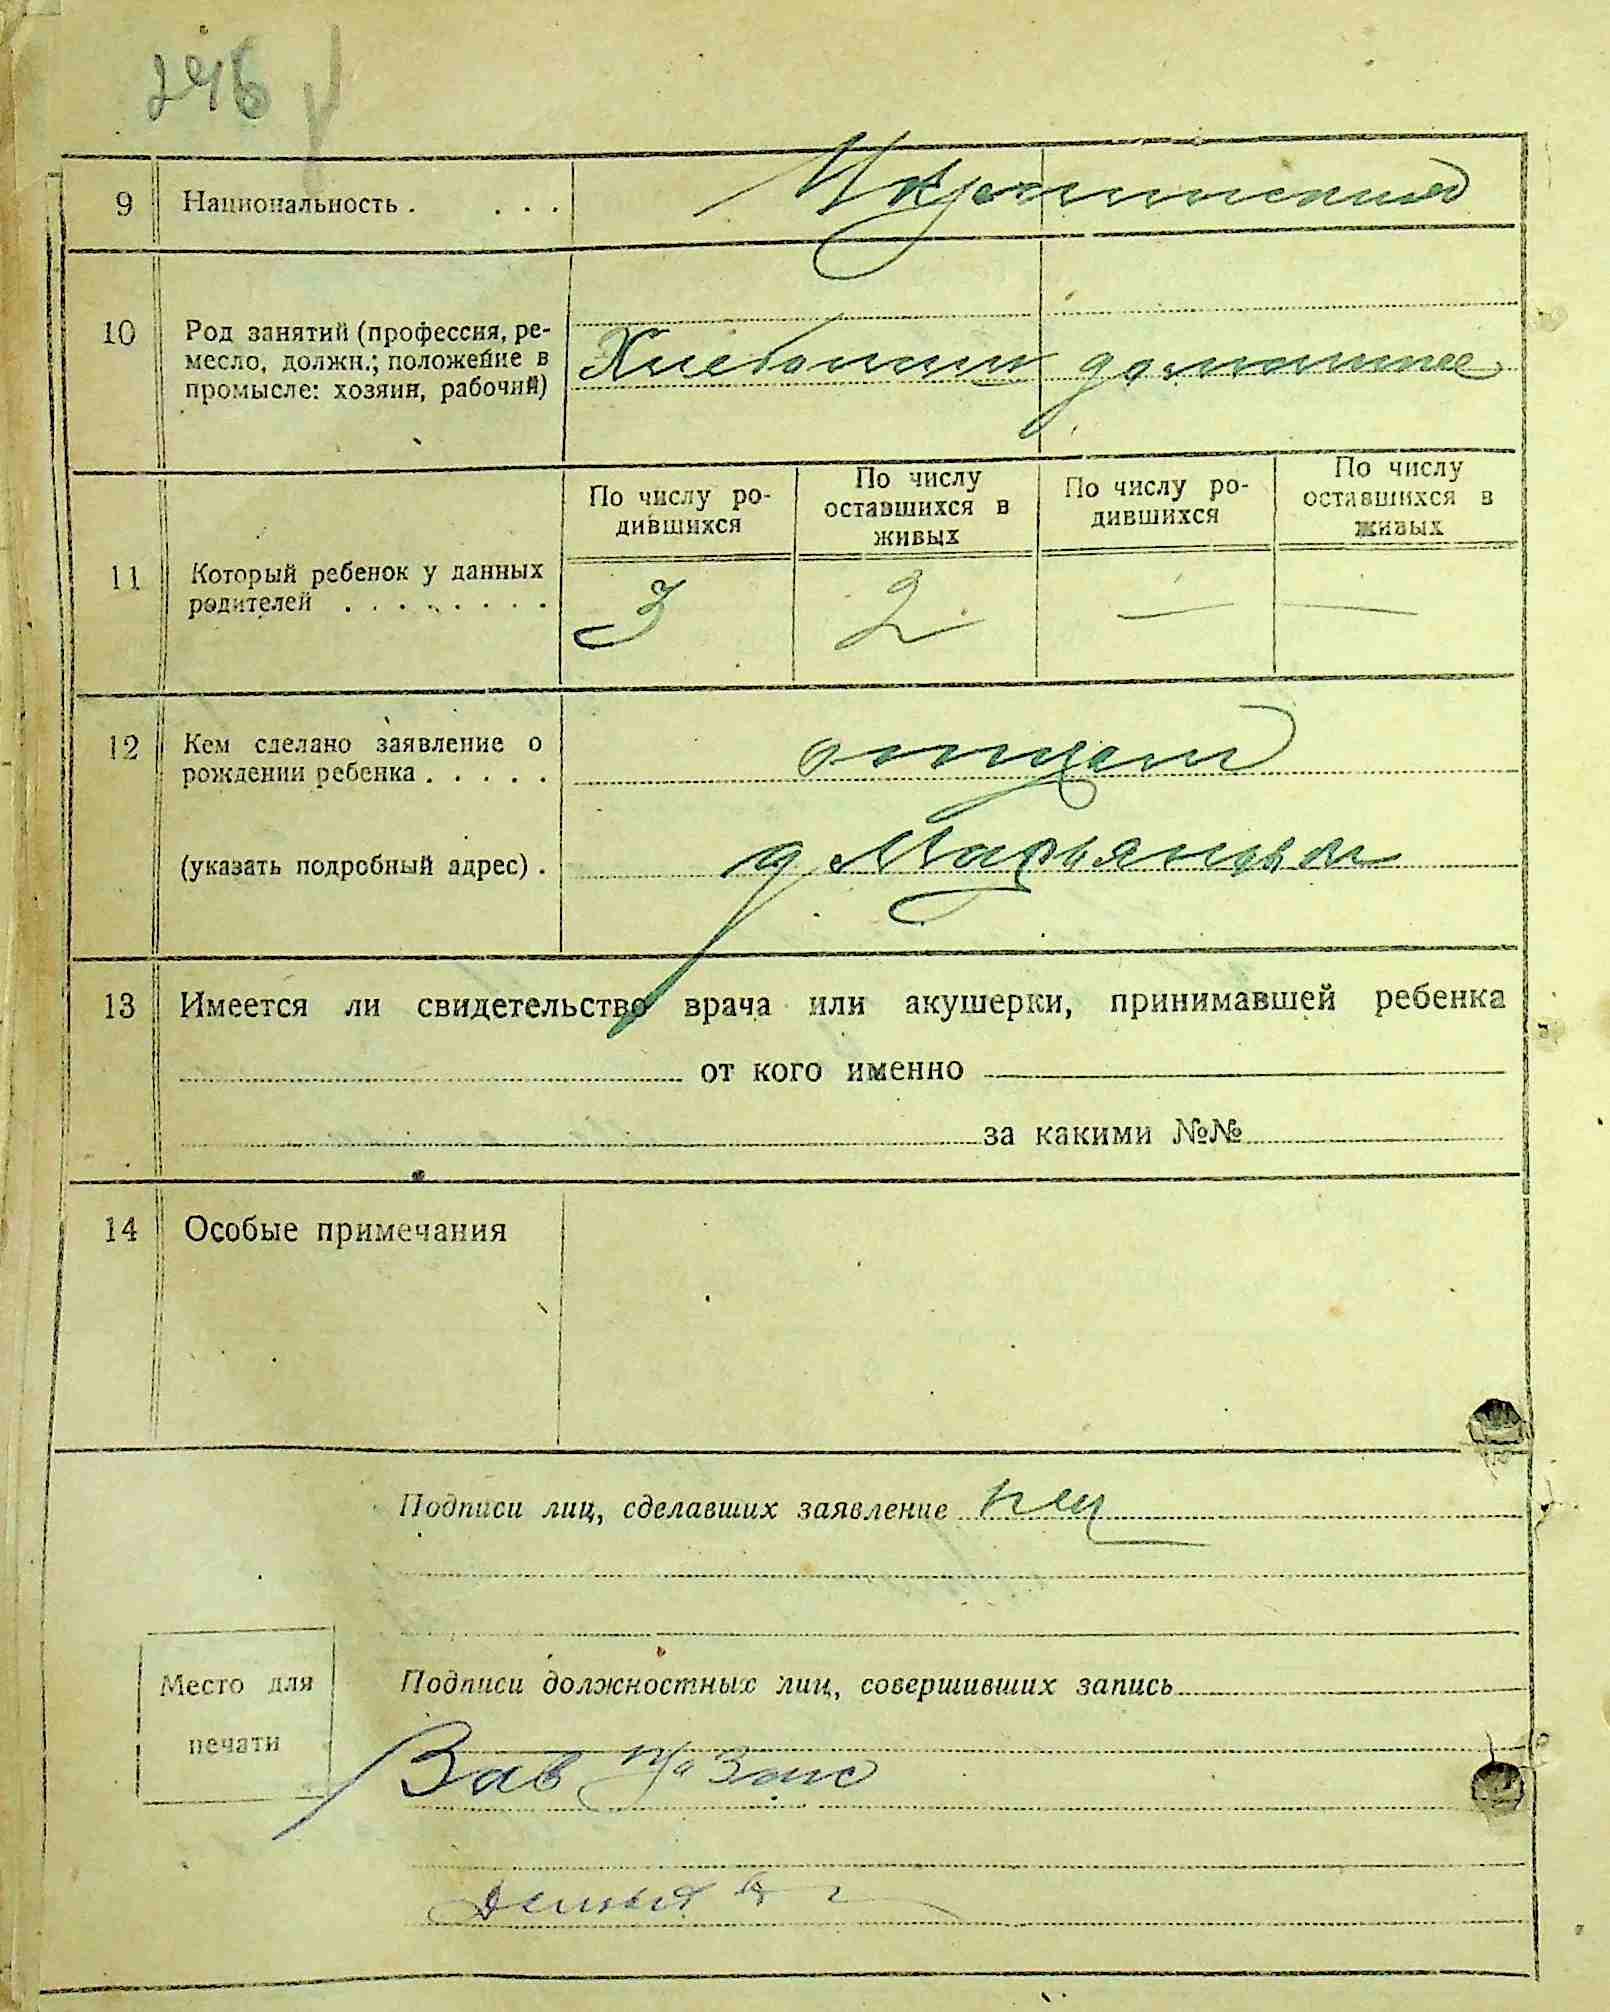 246
9 Национальность . . . . Украинская
10 Род занятий (профессия, ре-
месло, должн.; положение в
промысле: хозяин, рабочий)
Хлебопаш домашнее
По числу ро-
дившихся
По числу
оставшихся в
живых
По числу ро-
дившихся
По числу
оставшихся в
живых
11 Который ребенок у данных
родителей . . . . . . . .
3 2 — —
12 Кем сделано заявление о
рождении ребенка . . . . . отцом
(указать подробный адрес) . д Марьяновка
13 Имеется ли свидетельство врача или акушерки, принимавшей ребенка
от кого именно
за какими №№
14 Особые примечания
Подписи лиц, сделавших заявление
Место для
печати
Подписи должностных лиц, совершивших запись
Зав Загс